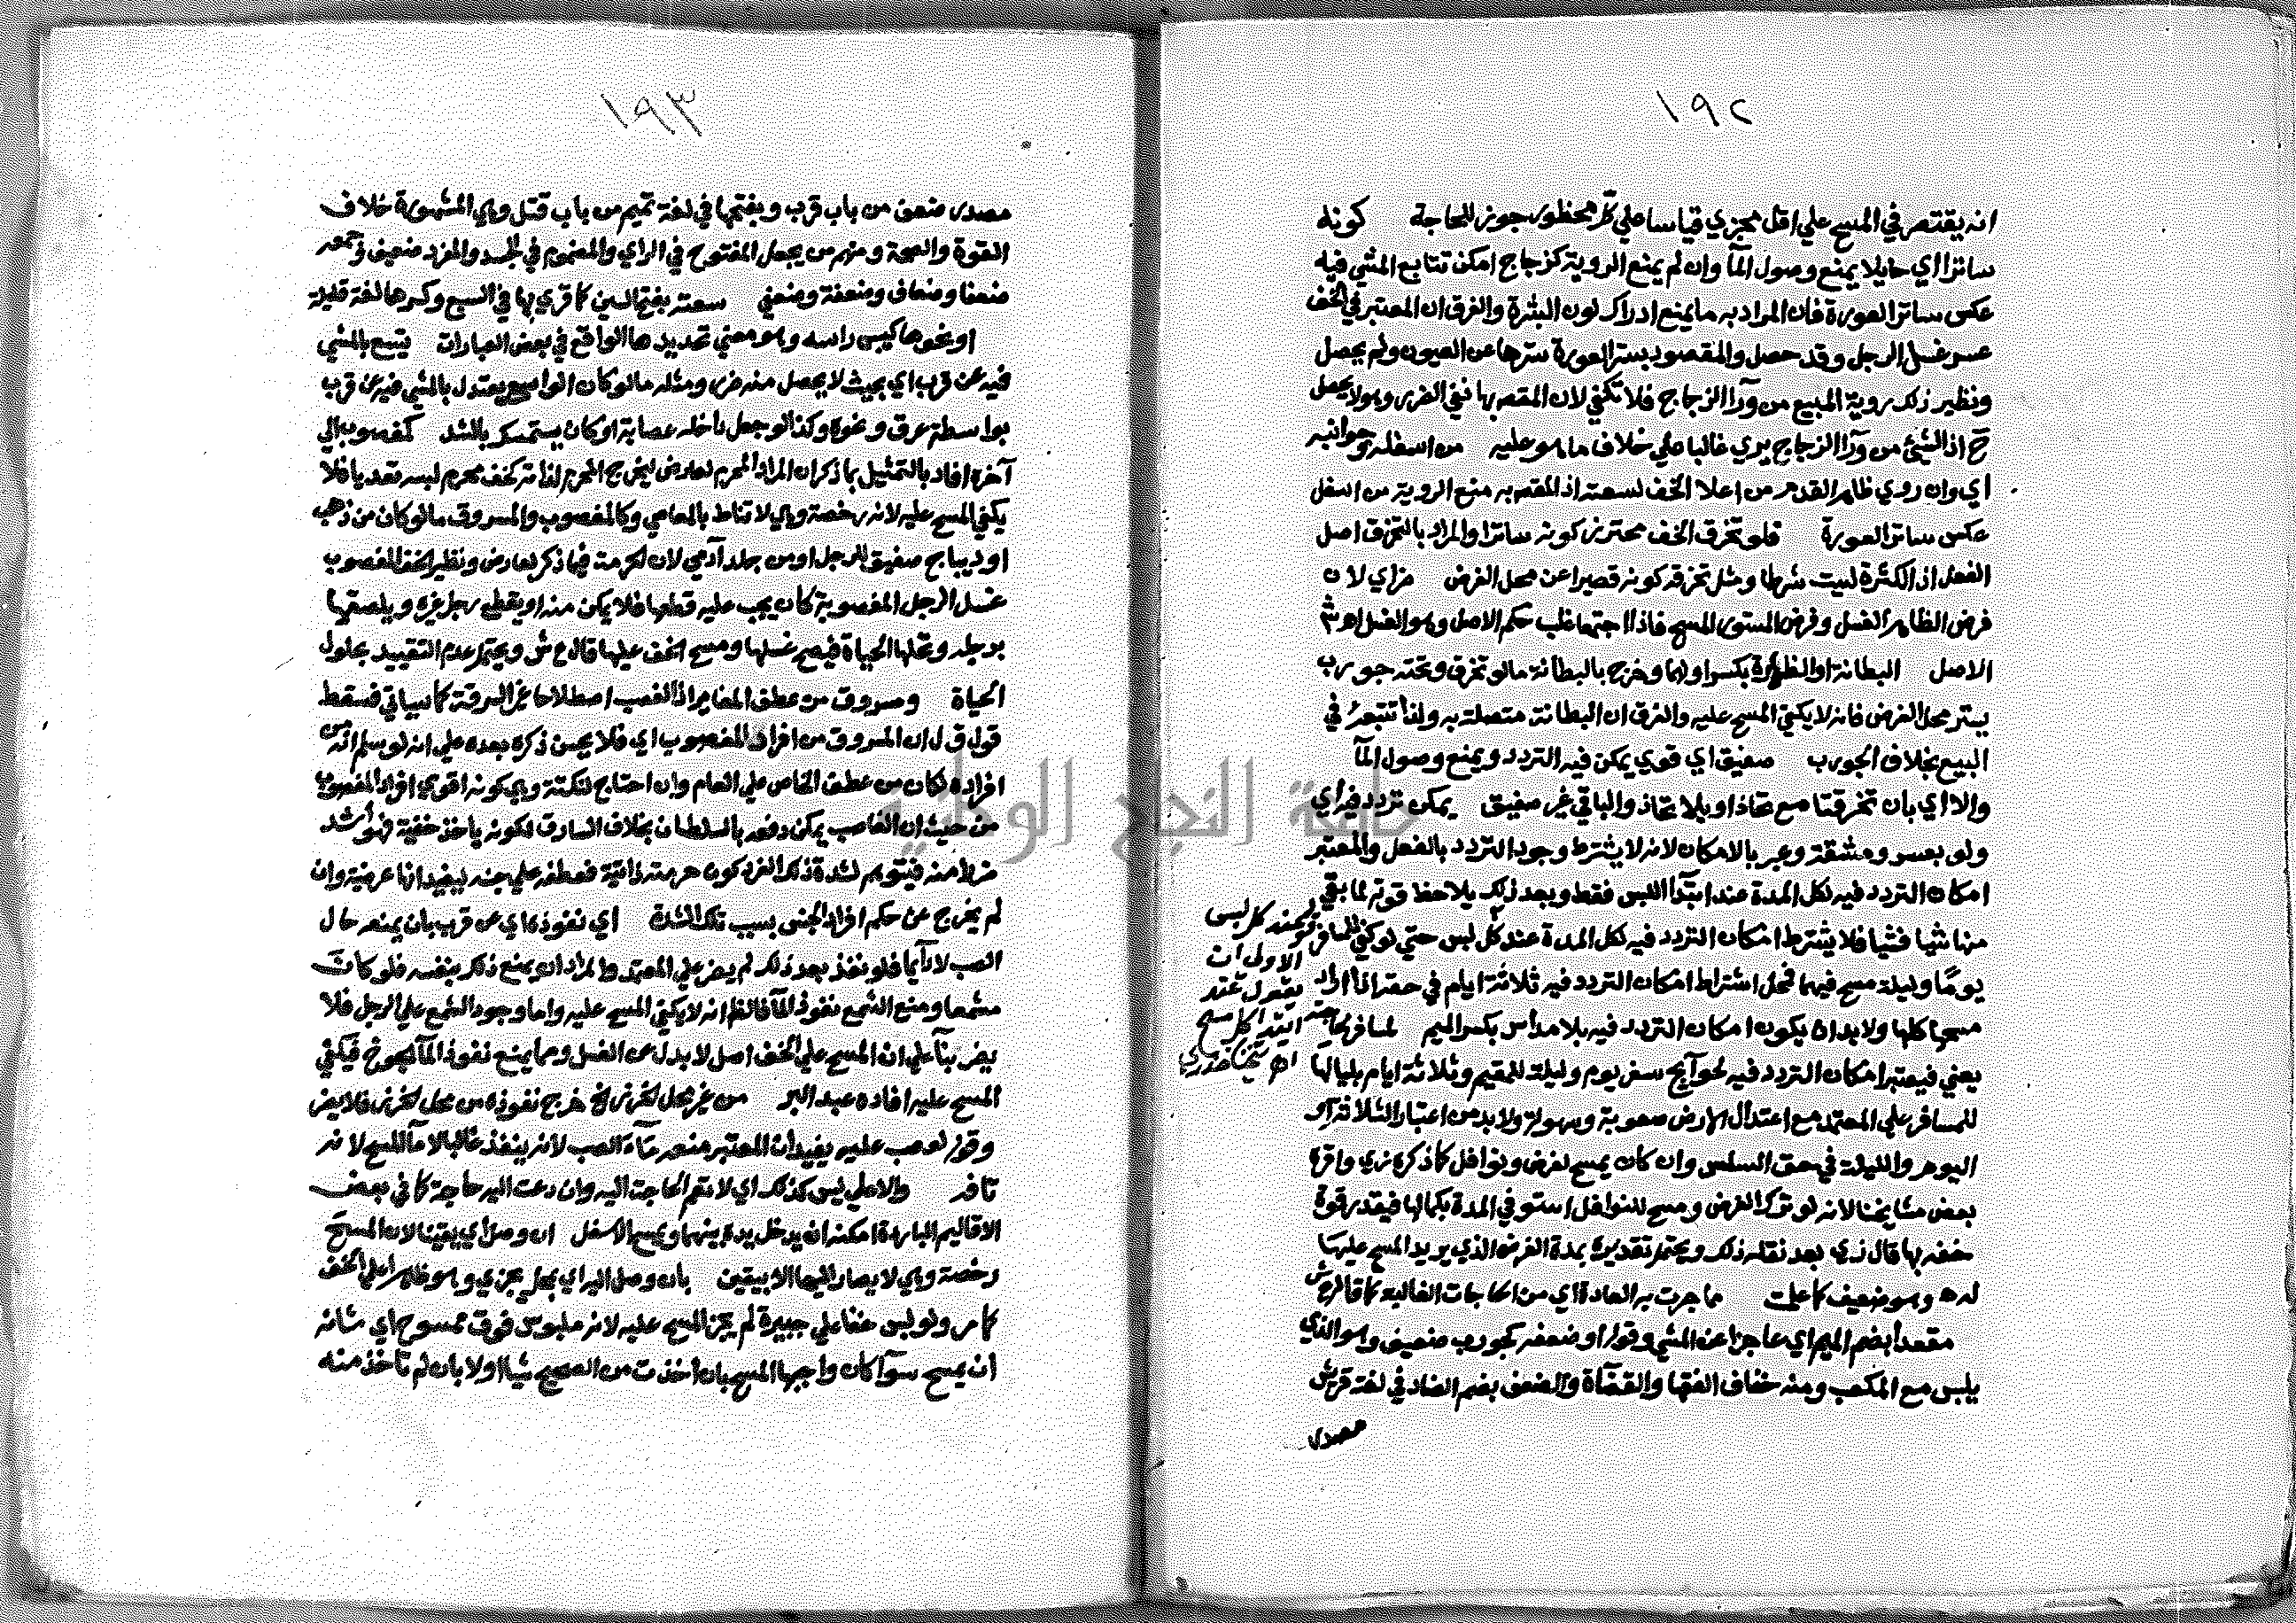 ١٩٢
انه يقتصر في المسح علي اقل مجزي قياسا علي كل محظور جوز للحاجة كونه
ساترا اي حايلا يمنع وصول المآ وان لم يمنع الروية كزجاج امكن تتابع المشي فيه
عكس ساتر العورة فان المراد به ما يمنع ادراك لون البشرة والفرق ان المعتبر في الخف
عسر غسل الرجل وقد حصل والمقصود بستر العورة سترها عن العيون ولم يحصل
ونظير ذلك روية المبيع من ورآ الزجاج فلا تكفي لان المقصد بها نفي الغرر وهو لا يحصل
ح اذ الشيئ من ورآ الزجاج يري غالبا علي خلاف ما هو عليه من اسفله وجوانبه
اي وان روي ظاهر القدم من اعلا الخف لسعته اذ المقصد به منع الروية من اسفل
عكس ساتر العورة فلو تخرق الخف محترز كونه ساترا والمراد بالتخرق اصل
الفعل اذ الكثرة ليست شرطا ومثل تخرقه كونه قصيرا عن محل الفرض مزاي لان
فرض الظاهر الغسل وفرض المستور المسح فاذا اجتمعا غلب حكم الاصل وهو الغسل اه ش
الاصل البطانة او الظهارة بكسر اولهما وخرج بالبطانة مالو تخرق وتحته جورب
يستر محل الفرض فانه لا يكفي المسح عليه والفرق ان البطانة متصلة به ولذا تتبعه في
البيع بخلاف الجورب صفيق اي قوي يمكن فيه التردد ويمنع وصول المآ
والا اي بان تخرقتا مع تحاذ او بلا تحاذ والباقي غير صفيق يمكن تردد فيه اي
ولو بعسر ومشقة وعبر بالامكان لانه لا يشترط وجود التردد بالفعل والمعتبر
امكان التردد فيه لكل المدة عند ابتدآ اللبس فقط وبعد ذلك يلاحظ قوته لما بقي
منها شيا فشيا فلا يشترط امكان التردد فيه لكل المدة عند كل لبس حتي لو كفي المسافر
يوما وليلة مسح فيهما فحل اشتراط امكان التردد فيه ثلاثة ايام في حقه اذا اراد
مسحها كلها ولا بد ان يكون امكان التردد فيه بلا مداس بكسر الميم لمسافر لحاجته
يعني فيعتبر امكان التردد فيه لحوآيج سفر يوم وليلة للمقيم وثلاثة ايام بلياليها
للمسافر علي المعتمد مع اعتدال الارض صعوبة وسهولة ولا بد من اعتبار الثلاثة او
اليوم والليلة في حق السلس وان كان يمسح لفرض ونوافل كما ذكره زي واقره
بعض مشايخنا لانه لو ترك الفرض ومسح للنوافل استوفي المدة بكمالها فيقدر قوة
خفه بها قال زي بعد نقله ذلك ويحتمل تقديره بمدة الفرض الذي يريد المسح عليها
له اه وهو ضعيف كما علمت ما جرت به العادة اي من الحاجات الغالبة كما قاله ع ش
مقعدا بضم الميم اي عاجزا عن المشي وقوله او ضعفه كجورب ضعيف وهو الذي
يلبس مع المكعب ومنه خفاف الفقها والقضاة والضعف بضم الضاد في لغة قريش
مصدر
عند كل لبس
الاول ان
يقول عند
ابتدآ كل مسح
١٩٣
مصدر ضعف من باب قرب وبفتحها في لغة تميم من باب قتل وهي المشهورة خلاف
القوة والصحة ومنهم من يجعل المفتوح في الراي والمضموم في الجسد والمفرد ضعيف وجمعه
ضعفا وضعاف وضعفة وضعفي سعته بفتح السين كما قري بها في السبع وكسرها لغة قليلة
او نحوها كيبس راسه وهو معني تحديدها الواقع في بعض العبارات يتسع بالمشي
فيه عن قرب اي بحيث لا يحصل منه ضرر ومثله مالو كان الواسع يعتدل بالمشي فيه عن قرب
بواسطة عرق ونحوه وكذا لو جعل داخله عصابة او كان يستمسك بالشد كمغصوب الي
آخره افاد بالتمثيل بما ذكر ان المراد المحرم لعارض ليخرج المحرم لذاته كخف محرم لبسه تعديا فلا
يكفي المسح عليه لانه رخصة وهي لا تناط بالمعاصي وكالمغصوب والمسروق مالو كان من ذهب
او ديباج صفيق للرجل او من جلد آدمي لان الحرمة فيما ذكر لعارض ونظير الخف المغصوب
غسل الرجل المغصوبة كان يجب عليه قطعها فلا يمكن منه او يقطع رجل غيره ويلصقها
برجله وتحلها الحياة فيصح غسلها ومسح الخف عليها قاله ع ش ويحتمل عدم التقييد بحلول
الحياة ومسروق من عطف المغاير اذ الغصب اصطلاحا غير السرقة كما سياتي فسقط
قول ق ل ان المسروق من افراد المغصوب اي فلا يحسن ذكره بعده علي انه لو سلم انه من
افراده لكان من عطف الخاص علي العام وان احتاج لنكتة وهي كونه اقوي افراد المغصوب
من حيث ان الغاصب يمكن دفعه بالسلطان بخلاف السارق لكونه ياخذ خفية فهو اشد
ضررا منه فيتوهم لشدة ذلك الفرد كون حرمته ذاتية فعطفه علي جنسه ليفيد انها عرضية وان
لم يخرج عن حكم افراد الجنس بسبب تلك الشدة اي نفوذ ماي عن قرب بان يمنعه حال
الصب لا دآيما فلو نفذ بعد ذلك لم يضر علي المعتمد والمراد ان يمنع ذلك بنفسه فلو كانت
مشمعا ومنع الشمع نفوذ المآ فالظ انه لا يكفي المسح عليه واما وجود الشمع علي الرجل فلا
يضر بنآ علي ان المسح علي الخف اصل لا بدل عن الغسل ومما يمنع نفوذ المآ الجوخ فيكفي
المسح عليه افاده عبد البر من غير محل الخرز الخ خرج نفوذه من محل الخرز فلا يضر
وقوله لو صب عليه يفيد ان المعتبر منعه مآء الصب لانه ينفذ غالبا لا مآ المسح لانه
تافه والاعلي ليس كذلك اي لا تعم الحاجة اليه وان دعت اليه حاجة كما في بعض
الاقاليم الباردة امكنه ان يدخل يده بينهما ويمسح الاسفل ان وصل اي يقينا لان المسح
رخصة وهي لا يصار اليها الا بيقين بان وصل اليه اي بمحل يجزي وهو ظاهر اعلي الخف
كما مر ولو لبس خفا علي جبيرة لم يجز المسح عليه لانه ملبوس فوق ممسوح اي شانه
ان يمسح سوآ كان واجبها المسح بان اخذت من الصحيح شيا او لا بان لم تاخذ منه